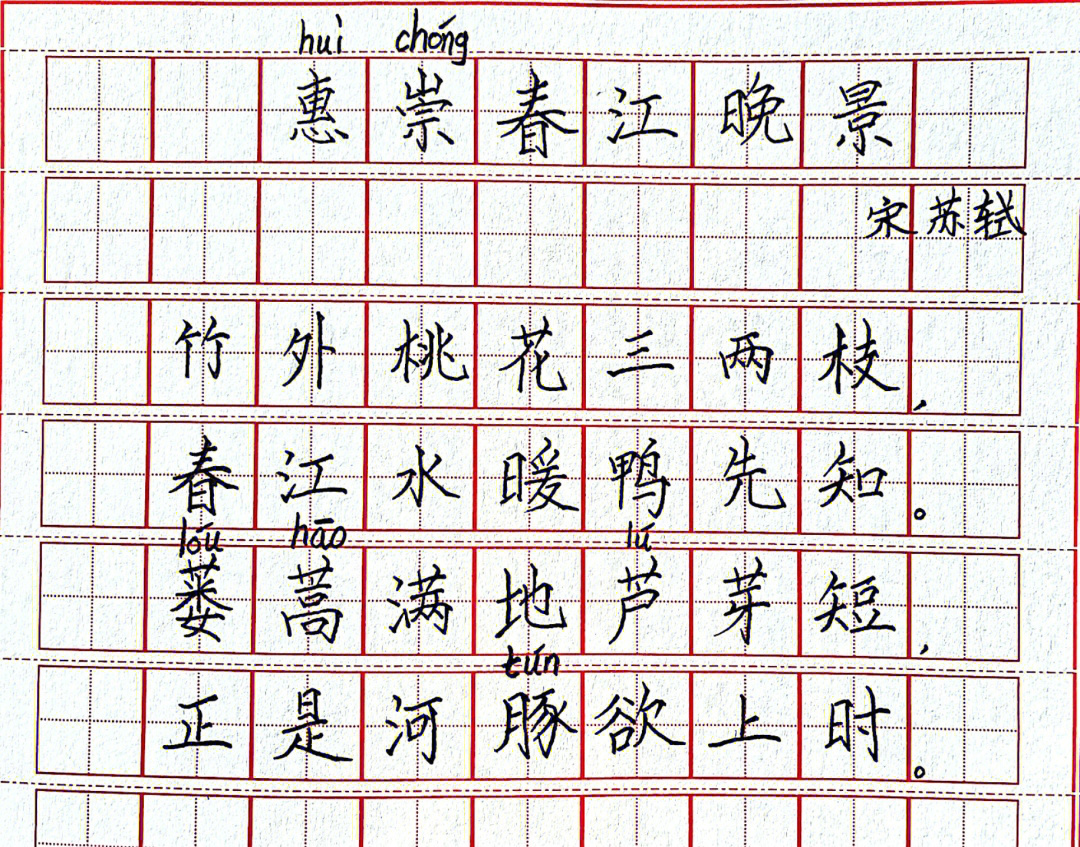 huì chóng
惠崇春江晚景
宋 苏轼
竹外桃花三两枝,
春江水暖鸭先知。
lóu hāo lú
蒌蒿满地芦芽短,
tún
正是河豚欲上时。